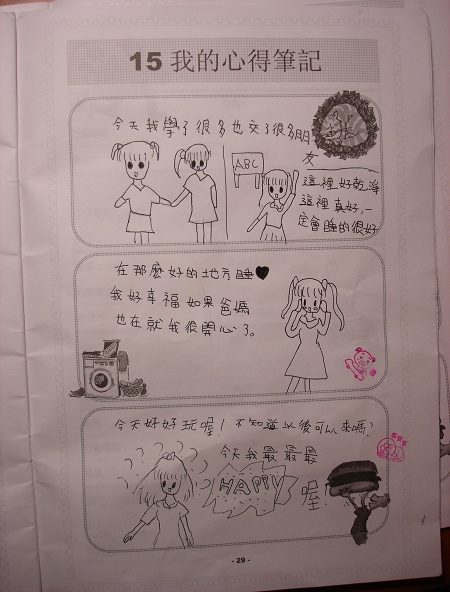 15 我的心得筆記
今天我學了很多也交了很多朋
友
ABC
這裡好乾淨
這裡真好,一
定會睡的很好
在那麼好的地方睡♥
我好幸福如果爸媽
也在就我很開心了。
今天好好玩喔!不知道以後可以來嗎?
今天我最最最
HAPPY 喔
- 29 -